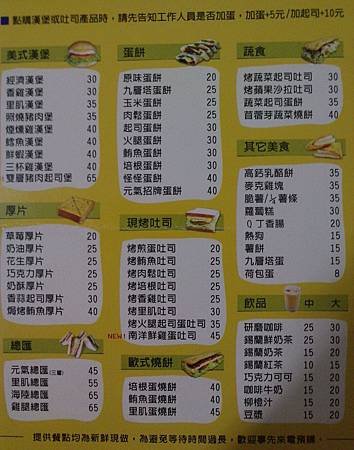 ■ 點購漢堡或吐司產品時，請先告知工作人員是否加蛋，加蛋+5元/加起司+10元
美式漢堡
經濟漢堡 30
香雞漢堡 30
里肌漢堡 35
照燒豬肉堡 35
煙燻雞漢堡 40
鱈魚漢堡 40
鮮蝦漢堡 40
三杯雞漢堡 40
雙層豬肉起司堡 65
厚片
草莓厚片 20
奶油厚片 25
花生厚片 25
巧克力厚片 25
奶酥厚片 25
香蒜起司厚片 30
焗烤鮪魚厚片 40
總匯
元氣總匯(三層) 45
里肌總匯 55
海陸總匯 65
雞腿總匯 65
蛋餅
原味蛋餅 20
九層塔蛋餅 25
玉米蛋餅 25
肉鬆蛋餅 25
起司蛋餅 30
火腿蛋餅 30
鮪魚蛋餅 30
培根蛋餅 30
怪怪蛋餅 40
元氣招牌蛋餅 40
現烤吐司
烤煎蛋吐司 20
烤鮪魚吐司 25
烤肉鬆吐司 25
烤培根吐司 25
烤香雞吐司 25
烤里肌吐司 30
烤火腿起司蛋吐司 35
NEW! 南洋鮮雞蛋吐司 45
歐式燒餅
培根蛋燒餅 40
鮪魚蛋燒餅 40
里肌蛋燒餅 45
蔬食
烤蔬菜起司吐司 30
烤蘋果沙拉吐司 30
蔬菜起司蛋餅 35
苜蓿芽蔬菜燒餅 40
其它美食
高鈣乳酪餅 35
麥克雞塊 35
脆薯/¼薯條 35
蘿蔔糕 30
Q丁香腸 20
熱狗 15
薯餅 15
九層塔蛋 15
荷包蛋 8
飲品 中 大
研磨咖啡 25 30
錫蘭鮮奶茶 25 30
錫蘭奶茶 15 20
錫蘭紅茶 10 15
巧克力可可 15 20
咖啡牛奶 15 20
柳橙汁 15 20
豆漿 15 20
提供餐點均為新鮮現做，為避免等待時間過長，歡迎事先來電預購。